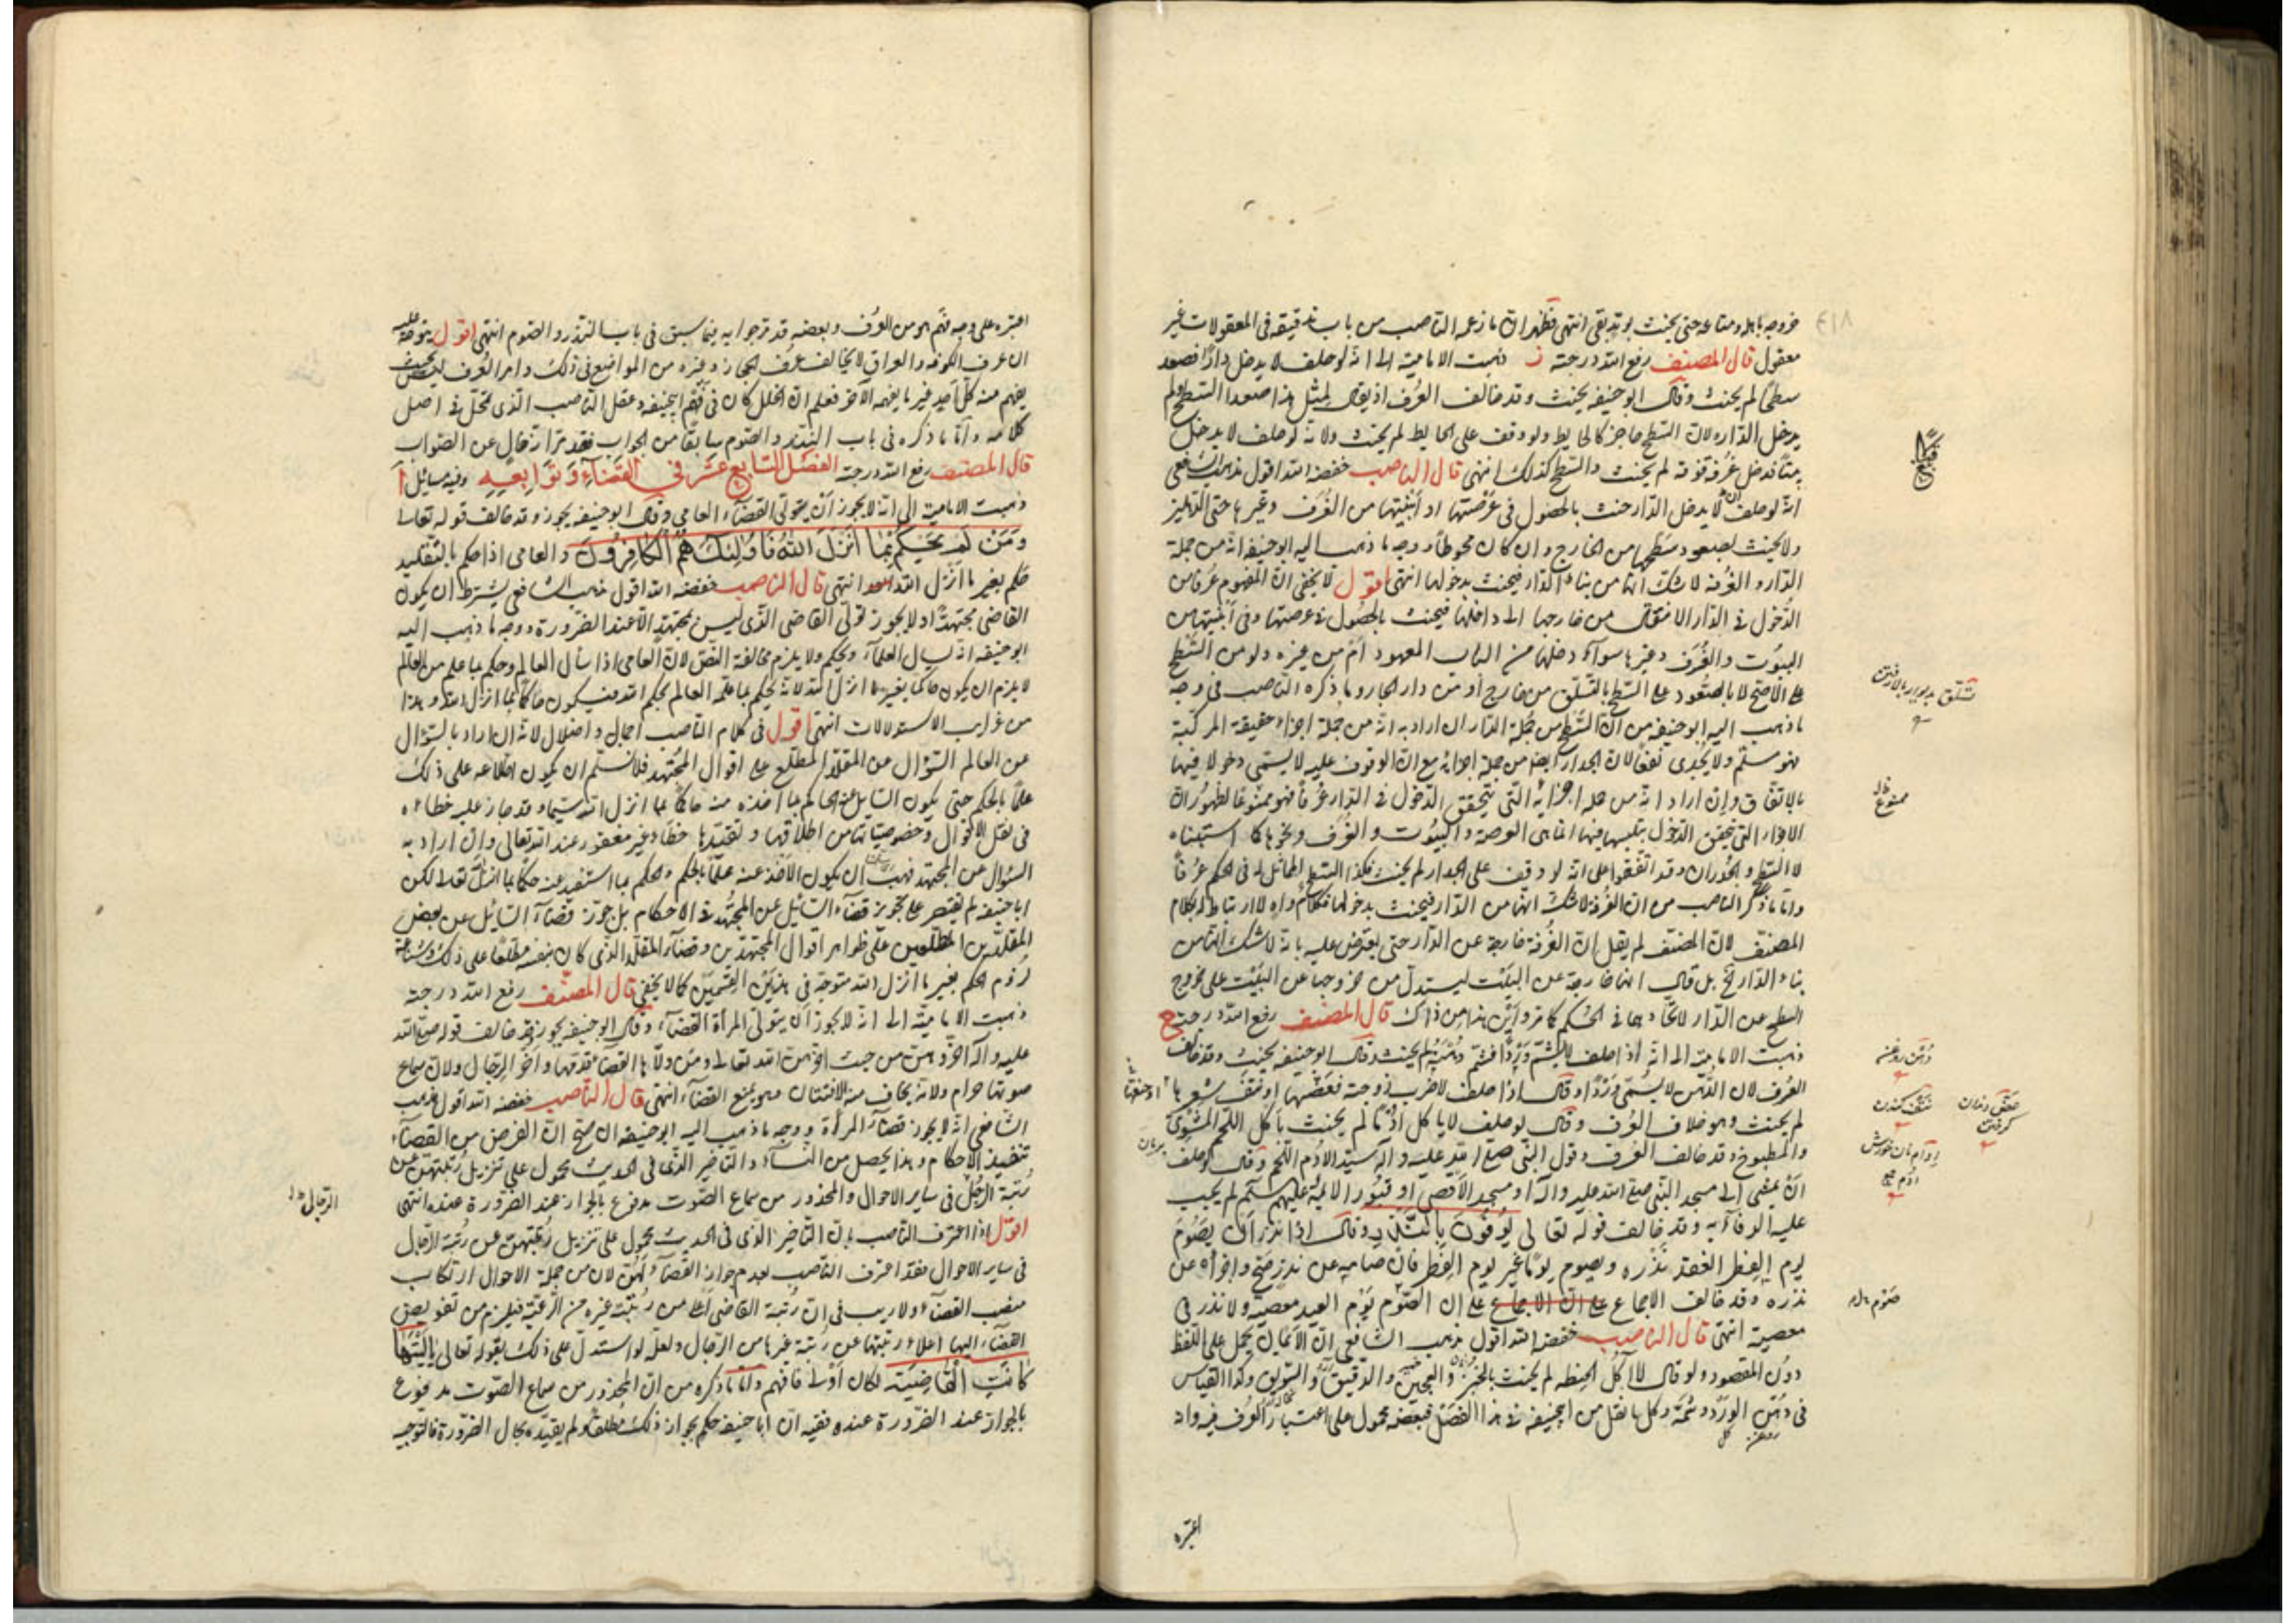 خروجه باهله ومتاعه حتى يحنث لو تبقى انتهى فظهر ان ما زعمه الناصب من باب تدقيقه فى المعقولات غير
معقول قال المصنف رفع الله درجته ز ذهبت الامامية الى انه لو حلف لا يدخل دارًا فصعد
سطحًا لم يحنث وقال ابو حنيفه يحنث وقد خالف العُرف اذ يقال لمثل هذا صعد السّطح ولم
يدخل الدّار ولان السّطح حاجز كالحايط ولو وقف على الحايط لم يحنث ولانه لو حلف لا يدخل
بيتًا فدخل غُرفة فوقه لم يحنث والسّطح كذلك انتهى قال الناصب خفضه الله اقول مذهب الشافعى
انه لو حلف ان لا يدخل الدّار حنث بالحصول فى عَرْصتها او ابنيتها من الغُرَف وغيرها حتى الدهليز
ولا يحنث بصعود سطحها من الخارج وان كان محوطًا ووجه ما ذهب اليه ابو حنيفه انه من جملة
الدار والغُرفة لا شك انها من بناء الدّار فيحنث بدخولها انتهى اقول لا يخفى ان المفهوم عُرفا من
الدّخول فى الدّار الانتقال من خارجها الى داخلها فيحنث بالحصول فى عرصتها وفى ابنيتها من
البيُوت والغُرَف وغيرها سواء دخلها من الباب المعهود ام من غيره ولو من السّطح
على الاصح لا بالصّعود على السّطح بالتسلّق من خارج أو من دار الجار وما ذكره الناصب فى وجه
ما ذهب اليه ابو حنيفه من ان السّطح من جُملة الدّار ان اراد به انه من جملة اجزاء حقيقة المركبة
فهو مسلّم ولا يُجْدى نفعًا لان الجدار ايضا من جملة اجزائه مع ان الوقوف عليه لا يسمّى دخولا فيها
بالاتفاق وان اراد انه من جملة اجزائه التى يتحقق الدّخول فى الدّار عُرفًا فهو ممنُوعًا لظهور ان
الاجزاء التى يتحقق الدّخول بتلبسها فيها انما هى العرصة والبيُوت والغُرَف ونحوها كما استبناه
لا السّطح والجُدران وقد اتّفقوا على انه لو وقف على الجدار لم يحنث فكذا السّطح المماثل له فى الحكم عرُفًا
وامّا ما ذكره الناصب من ان الغُرفة لا شك انها من الدّار فيحنث بدخولها فكلام واهٍ لا ارتباط له بكلام
المصنف لان المصنف لم يقل ان الغُرفة خارجة عن الدّار حتى يعترض عليه بانه لا شك انها من
بناء الدّار الخ بل قال انها خارجة عن البيْت ليستدلّ من خروجها عن البيْت على خروج
السّطح عن الدّار لاتّحادهما فى الحُكم كما مرّ واَين هذا من ذاك قال المصنف رفع الله درجته ح
ذهبت الاماميّة الى انه اذا حلف لا يشَمّ وَرْدًا فشمّ دُهْنه لم يحنث وقال ابو حنيفه يحنث وقد خالف
العُرف لان الدُّهن لا يُسمّى وَرْدًا وقال اذا حلف لاضرب زوجته فعَضّها او نَتَفَ شعرها او خنقها
لم يحنث وهو خلاف العُرف وقال لو حلف لا ياكل اُدْمًا لم يحنث باكل اللحم المشوى
والمطبوخ وقد خالف العُرف وقول النّبى صلى الله عليه وآله سيّد الاُدُم اللّحم وقال لو حلف
ان يمشى الى مسجد النّبى صلى الله عليه وآله او مسجد الاَقصى او قبُور الائمّة عليهم السّلم لم يجب
عليه الوفاء به وقد خالف قوله تعالى يُوفُونَ بِالنَّذْرِ وقال اذا نذر اَن يَصُوم
يوم الفِطر انعقد نَذْره ويصوم يومًا غير يوم الفِطر فان صامه عن نذر صَحّ واجزأه عن
نذره وقد خالف الاجماع على ان الاجماع على ان الصّوم يوم العيد معصية ولا نذر فى
معصية انتهى قال الناصب خفضه الله اقول مذهب الشافعى ان الاَيمان يحمل على اللّفظ
دون المقصود ولو قال لا آكُل الحنطه لم يحنث بالخُبز والعجين والدّقيق والسّويق وكذا القياس
فى دُهن الورد وشمّه وكل ما نقل من ابيحنيفه فى هذا الفصْل فبعضه محمول على اعتبار العُرف فيه واد
اعتبره
قطع
تسلّق بديوار بالا رفتن
ممنوع
دُهن روغن
عضّ دندان گرفتن
نتف كندن
اِدام نان خورش
اُدُم جمع
صَوْم
بريان
روغن گل
اعتبره على وجه فهم هو من العُرف وبعضه قد مرّ جوابه فيما سبق فى باب النّذر والصّوم انتهى اقول يتوجّه عليه
ان عرف الكوفه والعراق لا يخالف عُرف الحجاز وغيره من المواضع فى ذلك وامر العُرف ليس بحيث
يفهم منه كلّ احدٍ غير ما يفهمه الآخر فعلم ان الخلل كان فى فهْم ابيحنيفه وعقل الناصب الّذى تمحّل فى اصل
كلامه وامّا ما ذكره فى باب النّذر والصّوم سابقًا من الجواب فقد مرّ انه خالٍ عن الصّواب
قال المصنف رفع الله درجته الفصْل السّابع عشر فى القضاء وتوابعه وفيه مسائل أ
ذهبت الامامية الى انه لا يجوز أن يتولّى القضاء العامى وقال ابو حنيفه يجوز وقد خالف قوله تعالى
وَمَنْ لَمْ يَحْكُمْ بِمَا أَنْزَلَ اللهُ فَأُولٰئِكَ هُمُ الْكَافِرُونَ والعامى اذا حكم بالتّقليد
حَكم بغير ما اَنْزل الله انتهى قال الناصب خفضه الله اقول مذهب الشافعى يشترط ان يكون
القاضى مجتهدًا ولا يجوز تولّى القاضى الّذى ليس بمجتهد الاّ عند الضّرورة ووجه ما ذهب اليه
ابو حنيفه انه يسأل العلماء ويحكم ولا يلزم مخالفة النّص لان العامى اذا سأل العالم وحكم بما علم من العالم
لا يلزم ان يكون حاكما بغير ما انزل الله لانه يحكم بما علّمه العالم بحكم الله فيكون حاكمًا بما انزل الله وهذا
من غرايب الاستدلالات انتهى اقول فى كلام الناصب اجمال واضلال لانه ان اراد بالسّؤال
عن العالم السّؤال عن المقلّد المطّلع على اقوال المجتهد فلا نسلّم ان يكون اطّلاعه على ذلك
علمًا بالحكم حتى يكون السّايل عنه الحاكم بما اخذه منه حاكمًا بما انزل الله سيّما وقد جاز عليه خطاءه
فى نقل الاقوال وخصوصيّاتها من اطلاقها وتقيّدها خطاءً غير مغفور عند الله تعالى وان اراد به
السّؤال عن المجتهد فهب ان يكون الاخذ عنه علمًا بالحكم والحكم بما استفيد عنه حكمًا بما انزل الله تعالى لكن
ابا حنيفه لم يقتصر على تجويز قضاء السّائل عن المجتهد فى الاحكام بل جوّز قضاء السّائل عن بعض
المقلّدين المطّلعين على ظواهر اقوال المجتهدين وقضاء المقلّد الذى كان بنفسه مطّلعًا على ذلك وشناعة
لزوم الحكم بغير ما انزل الله متوجّه فى هذين القسمين كما لا يخفى قال المصنّف رفع الله درجته
ذهبت الاماميّة الى انه لا يجوز ان يتولّى المرأة القضاء وقال ابو حنيفه يجوز وقد خالف قوله صلى الله
عليه وآله اخّروهن من حيث اخّرهن الله تعالى ومن ولاّها القضاء قدّمها واخّر الرّجال ولان سماع
صوتها حرام ولانه يخاف منه الافتتان وهو يمنع القضاء انتهى قال الناصب خفضه الله اقول مذهب
الشافعى انه لا يجوز قضاء المرأة ووجه ما ذهب اليه ابو حنيفه ان صحّ ان الغرض من القضاء
تنفيذ الاحكام وهذا يحصل من النّساء والتّاخير الّذى فى الحديث محمول على تنزيل رُتبتهنّ عن
رُتبة الرّجل فى ساير الاحوال والمحذور من سماع الصّوت مدفوع بالجواز عند الضّرورة عنده انتهى
اقول اذا اعترف الناصب بان التّاخير الذى فى الحديث محمول على تنزيل رُتبتهنّ عن رُتبة الرّجال
فى ساير الاحوال فقد اعترف الناصب بعدم جواز القضاء لهنّ لان من جملة الاحوال ارتكاب
منصب القضاء ولا ريب فى ان رُتبة القاضى اَعلى من رُتبة غيره من الرّعيّة فيلزم من تفويض
القضاء اليها اعلاء رتبتها عن رتبة غيرها من الرّجال ولعلّه لو استدلّ على ذلك بقوله تعالى يَالَيْتَهَا
كَانَتِ الْقَاضِيَةَ لكان أوْلى فافهم وامّا ما ذكره من ان المحذور من سماع الصّوت مدفوع
بالجواز عند الضّرورة عنده ففيه ان ابا حنيفه حكم بجواز ذلك مُطلقًا ولم يقيّده بحال الضّرورة فالتّوجيه
الرّجال